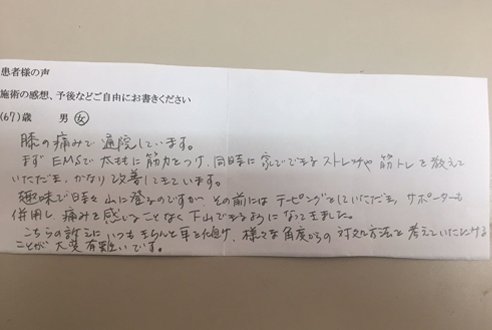 患者様の声
施術の感想、予後などご自由にお書きください
(67)歳 男 女
膝の痛みで通院しています。
まずEMSで太ももに筋力をつけ、同時に家でできるストレッチや筋トレを教えて
いただき、かなり改善してきています。
趣味で時々山に登るのですが、その前にはテーピングをしていただき、サポーターも
併用し、痛みを感じることなく下山できるようになってきました。
こちらの訴えにいつもきちんと耳を傾け、様々な角度からの対処方法を考えていただける
ことが大変有難いです。